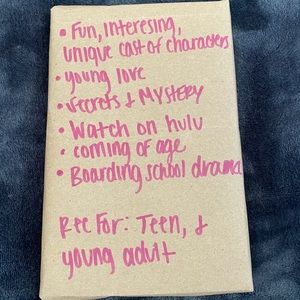 • Fun, interesing,
unique cast of characters
• young love
• secrets & MYSTERY
• Watch on hulu
• coming of age
• Boarding school drama
Rec For: Teen, &
young adult